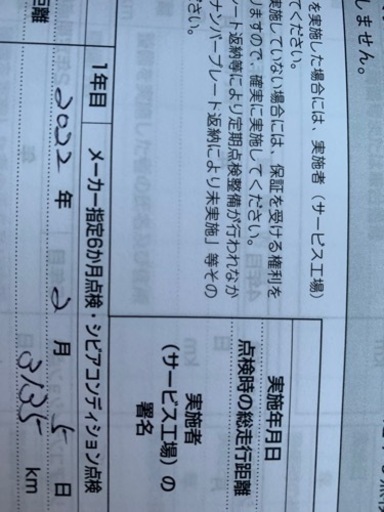 しません。
を実施した場合には、実施者（サービス工場）
てください。
実施していない場合には、保証を受ける権利を
りますので、確実に実施してください。
レート返納等により定期点検整備が行われなか
ナンバープレート返納により未実施」等その
さい。
距離
1年目
メーカー指定6か月点検・シビアコンディション点検
2022 年 2 月 5 日
3135 km
実施年月日
点検時の総走行距離
実施者
（サービス工場）の
署名